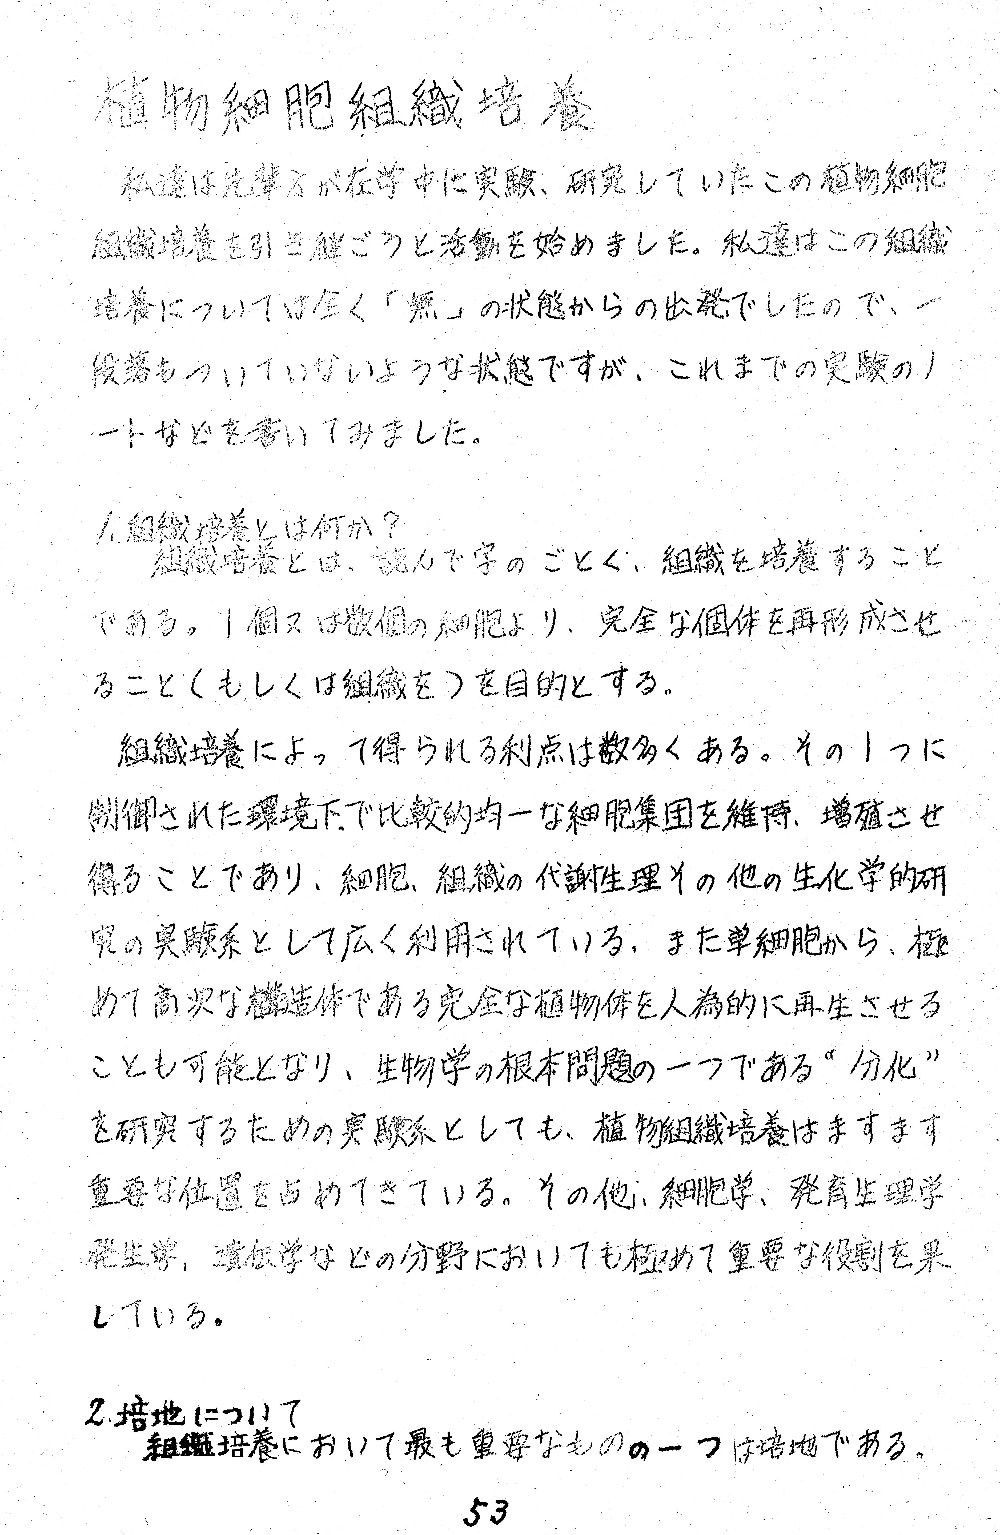 植物細胞組織培養
私達は先輩が在学中に実験、研究していたこの植物細胞
組織培養を引き継ごうと活動を始めました。私達はこの組織
培養については全く「無」の状態からの出発でしたので、一
段落もついていないような状態ですが、これまでの実験のノ
ートなどを書いてみました。
1.組織培養とは何か?
組織培養とは、読んで字のごとく、組織を培養すること
である。1個又は数個の細胞より、完全な個体を再形成させ
ること(もしくは組織を)を目的とする。
組織培養によって得られる利点は数多くある。その1つに
制御された環境下で比較的均一な細胞集団を維持、増殖させ
得ることであり、細胞、組織の代謝生理その他の生化学的研
究の実験系として広く利用されている。また単細胞から、極
めて高次な構造体である完全な植物体を人為的に再生させる
ことも可能となり、生物学の根本問題の一つである“分化”
を研究するための実験系としても、植物組織培養はますます
重要な位置を占めてきている。その他、細胞学、発育生理学
発生学、遺伝学などの分野においても極めて重要な役割を果
している。
2.培地について
組織培養において最も重要なものの一つは培地である。
53